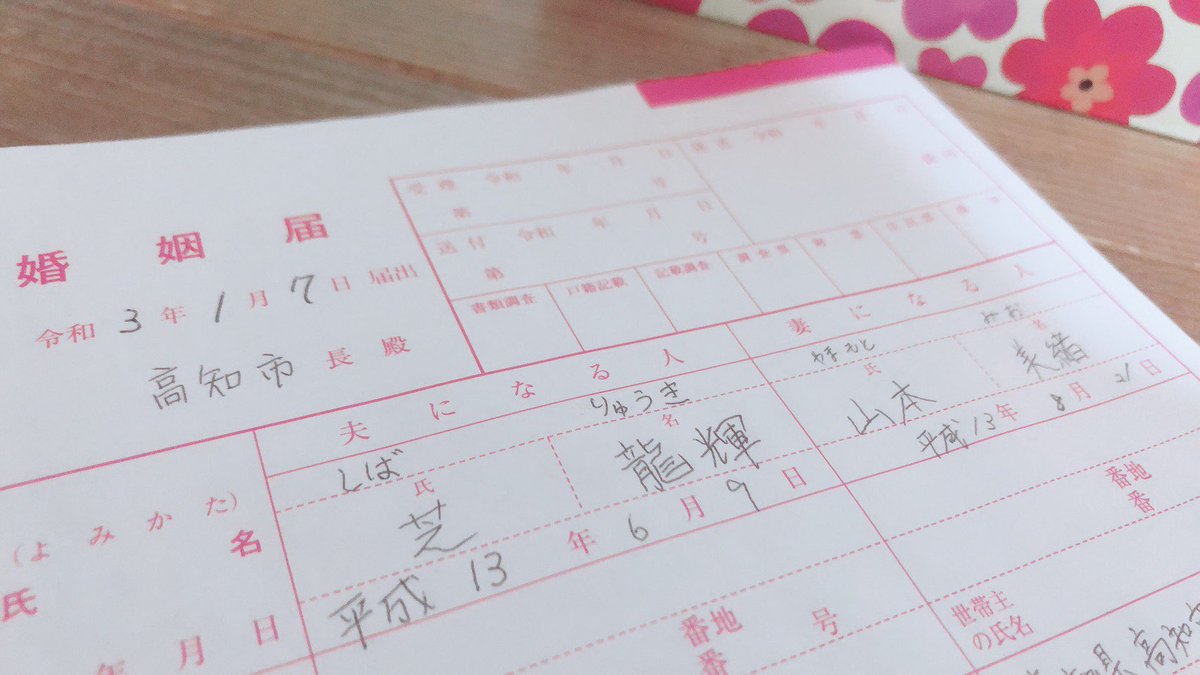 婚姻届
令和3年1月7日届出
高知市長殿
受理 令和 年 月 日
第 号
送付 令和 年 月 日
第 号
書類調査 戸籍記載 記載調査 調査票 附票 住民票 通知
夫になる人
妻になる人
(よみかた)
しば りゅうき
やまもと みお
氏 名
氏名
芝 龍輝
山本 美緒
年 月 日
平成13年6月9日
平成13年8月21日
番地
番
号
番地
番
世帯主
の氏名